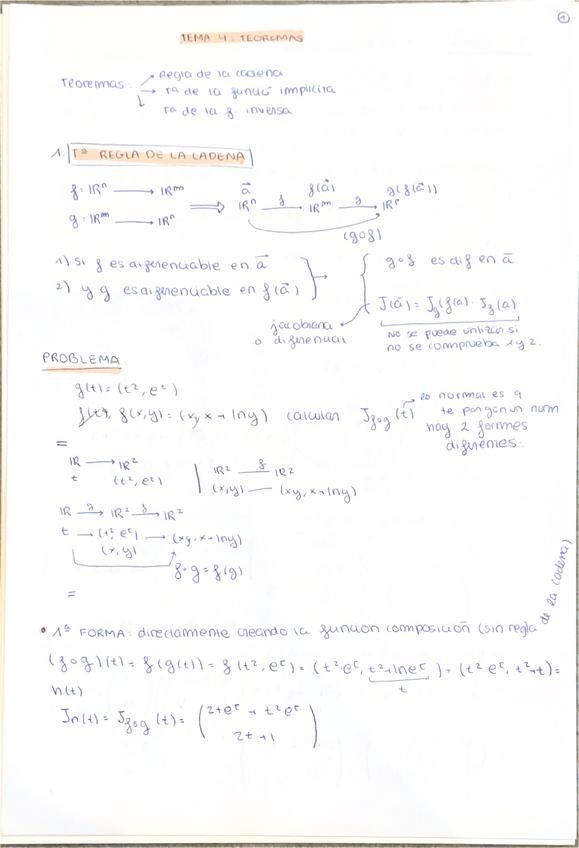 1
TEMA 4: TEOREMAS
Teoremas: → Regla de la cadena
→ Tª de la funció implícita
→ Tª de la f. inversa
1. Tª REGLA DE LA CADENA
f: IRⁿ → IRᵐ
g: IRᵐ → IRⁿ
⟹
a⃗ f(a⃗) g(f(a⃗))
IRⁿ —f→ IRᵐ —g→ IRᵖ
(g∘f)
1) Si f es diferenciable en a⃗
2) y g es diferenciable en f(a⃗)
g∘f es dif en a⃗
J(a⃗) = J_g(f(a)) · J_f(a)
jacobiana
o diferencial
No se puede utilizar si
no se comprueba 1 y 2.
PROBLEMA
g(t) = (t², eᵗ)
f(t), f(x,y) = (xy, x + lny) calcular J_f∘g (t) → lo normal es q
te pongan un num
hay 2 formes
diferentes.
=
IR → IR²
t (t², eᵗ)
IR² —f— IR²
(x,y) — (xy, x+lny)
IR —g→ IR² —f→ IR²
t → (t², eᵗ) → (xy, x+lny)
(x,y)
f∘g = f(g)
=
• 1ª FORMA: directamente creando la función composición (sin regla de la cadena)
(f∘g)(t) = f(g(t)) = f(t², eᵗ) = (t²·eᵗ, t²+lneᵗ) = (t² eᵗ, t²+t) =
t
h(t)
Jh(t) = J_f∘g (t) = (2teᵗ + t²eᵗ
2t+1)